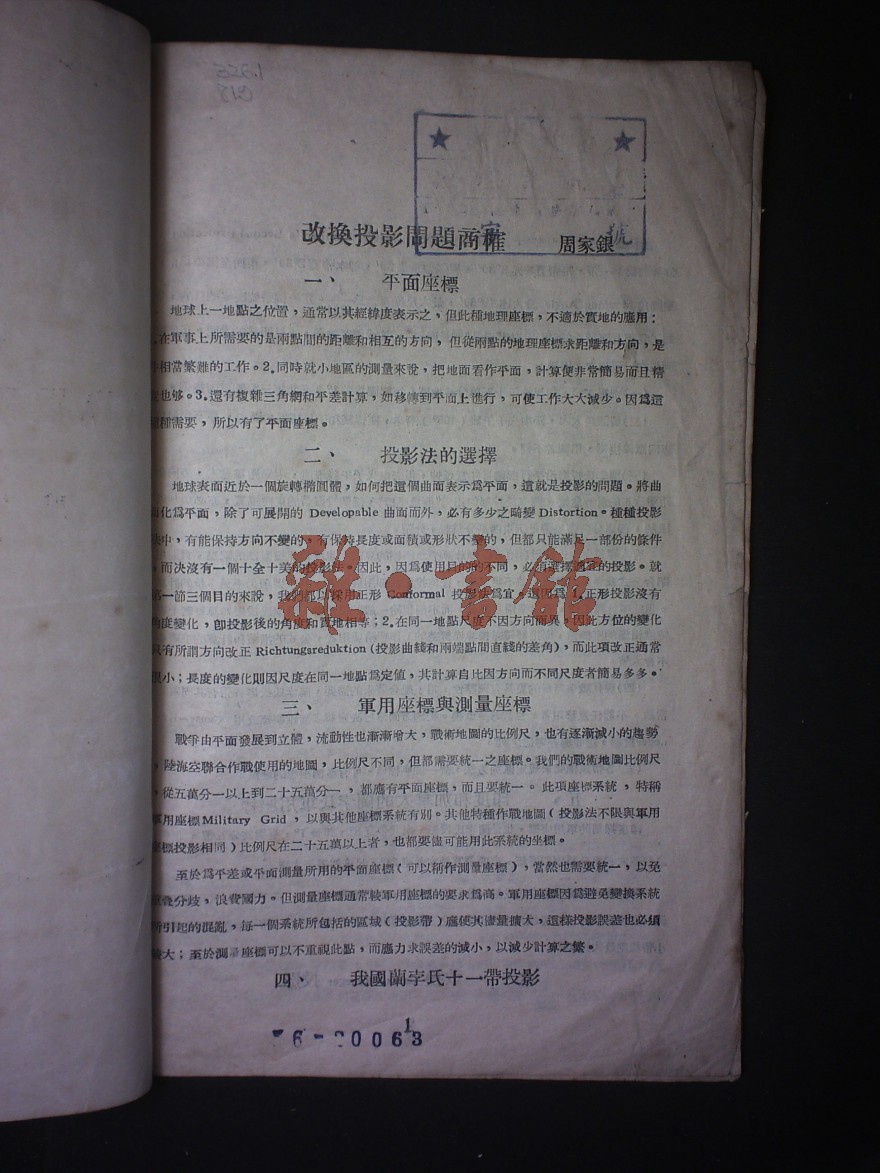 改換投影問題商榷 周家銀
號
一、 平面座標
地球上一地點之位置，通常以其經緯度表示之，但此種地理座標，不適於實地的應用：
在軍事上所需要的是兩點間的距離和相互的方向，但從兩點的地理座標求距離和方向，是
相當繁難的工作。2.同時就小地區的測量來說，把地面看作平面，計算便非常簡易而且精
也够。3.還有複雜三角網和平差計算，如移轉到平面上進行，可使工作大大減少。因爲這
種需要，所以有了平面座標。
二、 投影法的選擇
地球表面近於一個旋轉橢圓體，如何把這個曲面表示爲平面，這就是投影的問題。將曲
化爲平面，除了可展開的 Developable 曲面而外，必有多少之畸變 Distortion。種種投影
中，有能保持方向不變的，有保持長度或面積或形狀不變的，但都只能滿足一部份的條件
，而決沒有一個十全十美的投影法。因此，因爲使用目的的不同，必須選擇適宜的投影。就
一節三個目的來說，我們都以採用正形 Conformal 投影法爲宜。這因爲1.正形投影沒有
角度變化，卽投影後的角度和實地相等；2.在同一地點尺度不因方向而異，因此方位的變化
只有所謂方向改正 Richtungsreduktion (投影曲綫和兩端點間直綫的差角)，而此項改正通常
很小；長度的變化則因尺度在同一地點爲定值，其計算自比因方向而不同尺度者簡易多多。
三、 軍用座標與測量座標
戰爭由平面發展到立體，流動性也漸漸增大，戰術地圖的比例尺，也有逐漸減小的趨勢
，陸海空聯合作戰使用的地圖，比例尺不同，但都需要統一之座標。我們的戰術地圖比例尺
，從五萬分一以上到二十五萬分一，都應有平面座標，而且要統一。此項座標系統，特稱
軍用座標 Military Grid，以與其他座標系統有別。其他特種作戰地圖（投影法不限與軍用
座標投影相同）比例尺在二十五萬以上者，也都要儘可能用此系統的坐標。
至於爲平差或平面測量所用的平面座標（可以稱作測量座標），當然也需要統一，以免
重疊分歧，浪費國力。但測量座標通常較軍用座標的要求爲高。軍用座標因爲避免變換系統
所引起的混亂，每一個系統所包括的區域（投影帶）應使其儘量擴大，這樣投影誤差也必須
大；至於測量座標可以不重視此點，而應力求誤差的減小，以減少計算之繁。
四、 我國蘭孛氏十一帶投影
1
0063
雜·書館